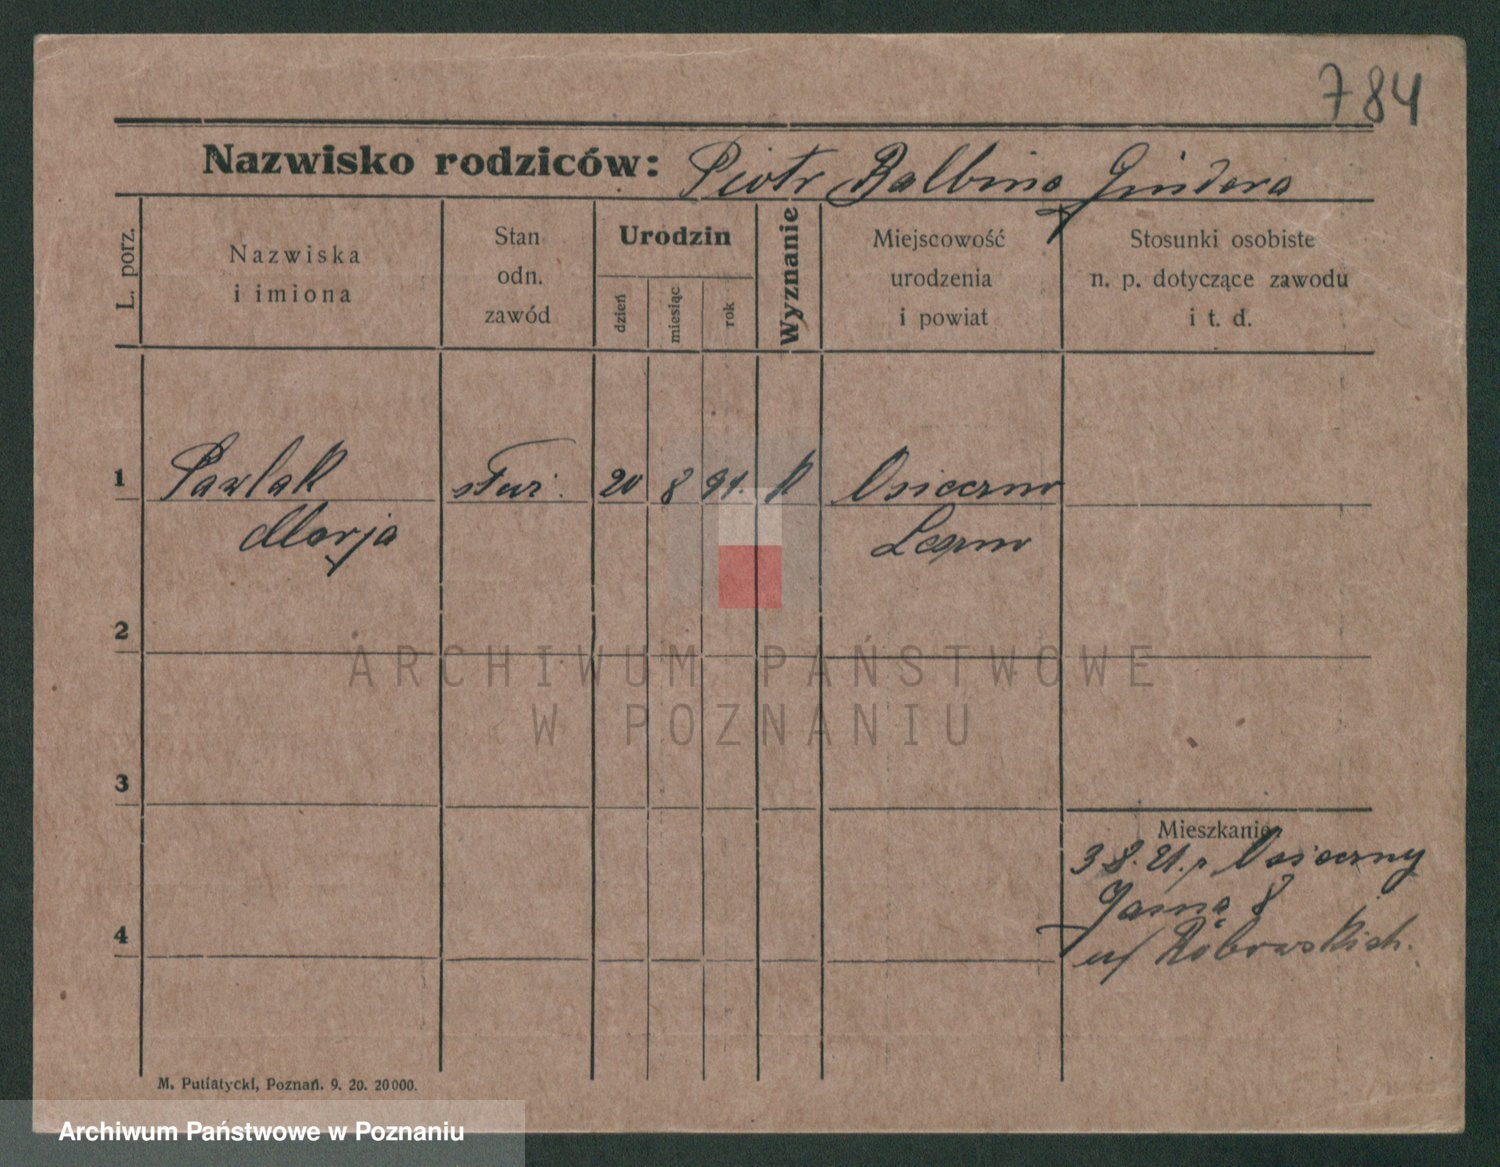 784
Nazwisko rodziców: Piotr Balbina Gindera
L. porz.
Nazwiska
i imiona
Stan
odn.
zawód
Urodzin
dzień
miesiąc
rok
Wyznanie
Miejscowość
urodzenia
i powiat
Stosunki osobiste
n. p. dotyczące zawodu
i t. d.
1 Pawlak służ. 20 8 91. k Osieczno
Marja Leszno
2
ARCHIWUM PAŃSTWOWE
W POZNANIU
3
Mieszkanie
3 8. 21. p Osieczny
Jasna 8
4
u/
M. Putiatycki, Poznań. 9. 20. 20000.
Archiwum Państwowe w Poznaniu